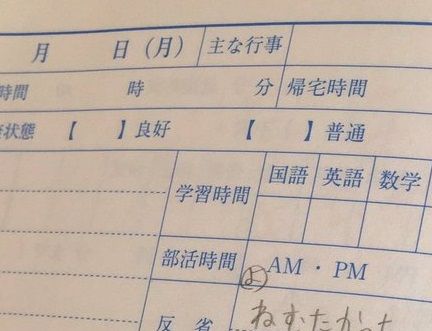 月 日(月) 主な行事
時間 時 分 帰宅時間
状態 【 】良好 【 】普通
学習時間 国語 英語 数学
部活時間 AM・PM
反省 ねむたかった